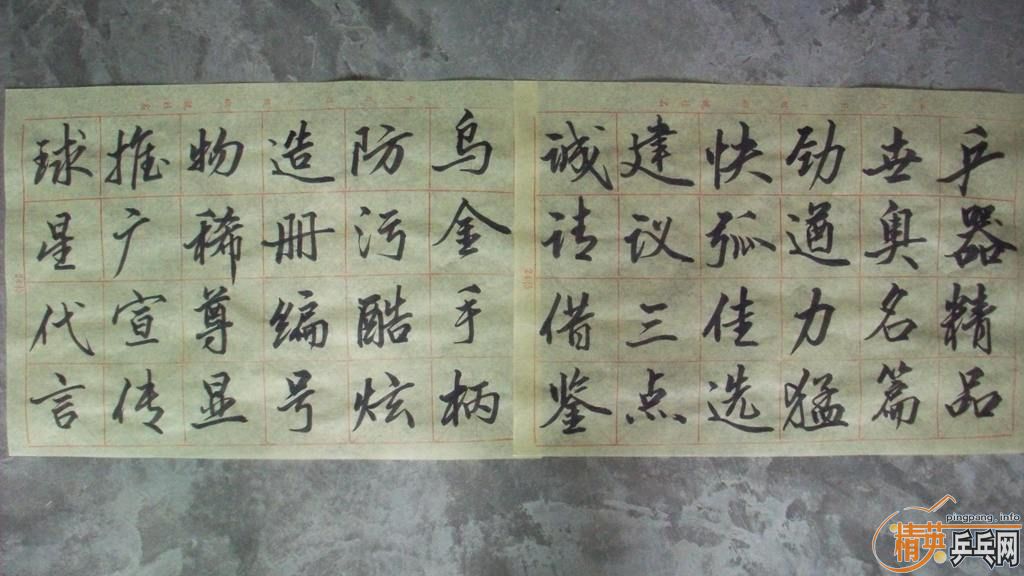 乒器精品
世奥名篇
劲遒力猛
快弧佳选
建议三点
诚请借鉴
乌金手柄
防污酷炫
造册编号
物稀尊显
推广宣传
球星代言
pingpang.info
精英乒乓网